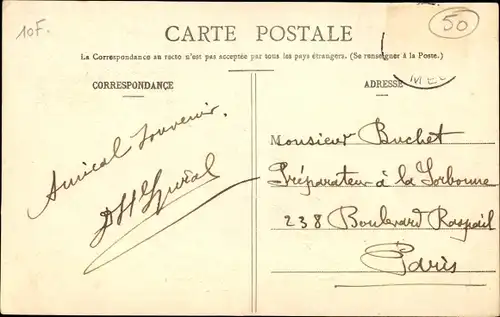 10F.
50
CARTE POSTALE
La Correspondance au recto n'est pas acceptée par tous les pays étrangers. (Se renseigner à la Poste.)
CORRESPONDANCE
ADRESSE
Amical Souvenir.
Monsieur Buchet
Préparateur à la Sorbonne
238 Boulevard Raspail
Paris